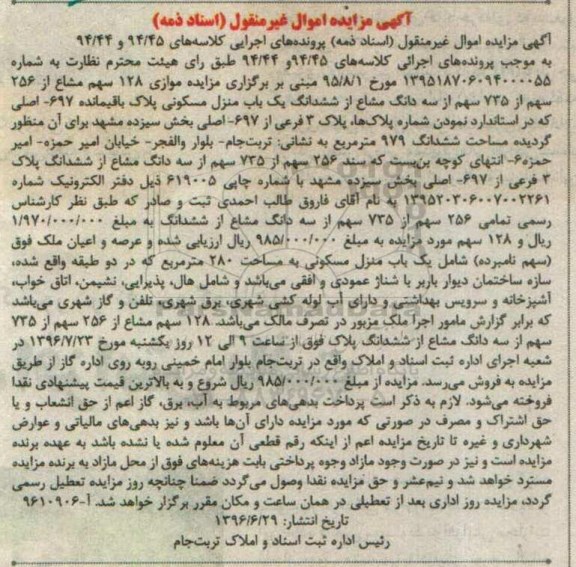 آگهی مزایده اموال غیرمنقول (اسناد ذمه)
آگهی مزایده اموال غیرمنقول (اسناد ذمه) پرونده‌های اجرایی کلاسه‌های ۹۴/۴۵ و ۹۴/۴۴
به موجب پرونده‌های اجرائی کلاسه‌های ۹۴/۴۵و ۹۴/۴۴ طبق رای هیئت محترم نظارت به شماره
۱۳۹۵۱۸۷۰۶۰۹۴۰۰۰۰۵۵ مورخ ۹۵/۸/۱ مبنی بر برگزاری مزایده موازی ۱۲۸ سهم مشاع از ۲۵۶
سهم از ۷۳۵ سهم از سه دانگ مشاع از ششدانگ یک باب منزل مسکونی پلاک باقیمانده ۶۹۷- اصلی
که در استاندارد نمودن شماره پلاک‌ها، پلاک ۳ فرعی از ۶۹۷- اصلی بخش سیزده مشهد برای آن منظور
گردیده مساحت ششدانگ ۹۷۹ مترمربع به نشانی: تربت‌جام- بلوار والفجر- خیابان امیر حمزه- امیر
حمزه۶- انتهای کوچه بن‌بست که سند ۲۵۶ سهم از ۷۳۵ سهم از سه دانگ مشاع از ششدانگ پلاک
۳ فرعی از ۶۹۷- اصلی بخش سیزده مشهد با شماره چاپی ۶۱۹۰۰۵ ذیل دفتر الکترونیک شماره
۱۳۹۵۲۰۳۰۶۰۰۷۰۰۲۲۶۱ به نام آقای فاروق طالب احمدی ثبت و صادر که طبق نظر کارشناس
رسمی تمامی ۲۵۶ سهم از ۷۳۵ سهم از سه دانگ مشاع از ششدانگ به مبلغ ۱/۹۷۰/۰۰۰/۰۰۰
ریال و ۱۲۸ سهم مورد مزایده به مبلغ ۹۸۵/۰۰۰/۰۰۰ ریال ارزیابی شده و عرصه و اعیان ملک فوق
(سهم نامبرده) شامل یک باب منزل مسکونی به مساحت ۲۸۰ مترمربع که در دو طبقه واقع شده،
سازه ساختمان دیوار باربر با شناژ عمودی و افقی می‌باشد و شامل هال، پذیرایی، نشیمن، اتاق خواب،
آشپزخانه و سرویس بهداشتی و دارای آب لوله کشی شهری، برق شهری، تلفن و گاز شهری می‌باشد
که برابر گزارش مامور اجرا ملک مزبور در تصرف مالک می‌باشد. ۱۲۸ سهم مشاع از ۲۵۶ سهم از ۷۳۵
سهم از سه دانگ مشاع از ششدانگ پلاک فوق از ساعت ۹ الی ۱۲ روز یکشنبه مورخ ۱۳۹۶/۷/۲۳ در
شعبه اجرای اداره ثبت اسناد و املاک واقع در تربت‌جام بلوار امام خمینی روبه روی اداره گاز از طریق
مزایده به فروش می‌رسد. مزایده از مبلغ ۹۸۵/۰۰۰/۰۰۰ ریال شروع و به بالاترین قیمت پیشنهادی نقدا
فروخته می‌شود. لازم به ذکر است پرداخت بدهی‌های مربوط به آب، برق، گاز اعم از حق انشعاب و یا
حق اشتراک و مصرف در صورتی که مورد مزایده دارای آن‌ها باشد و نیز بدهی‌های مالیاتی و عوارض
شهرداری و غیره تا تاریخ مزایده اعم از اینکه رقم قطعی آن معلوم شده یا نشده باشد به عهده برنده
مزایده است و نیز در صورت وجود مازاد وجوه پرداختی بابت هزینه‌های فوق از محل مازاد به برنده مزایده
مسترد خواهد شد و نیم‌عشر و حق مزایده نقدا وصول می‌گردد ضمنا چنانچه روز مزایده تعطیل رسمی
گردد، مزایده روز اداری بعد از تعطیلی در همان ساعت و مکان مقرر برگزار خواهد شد. آ-۹۶۱۰۹۰۶
تاریخ انتشار: ۱۳۹۶/۶/۲۹
رئیس اداره ثبت اسناد و املاک تربت‌جام